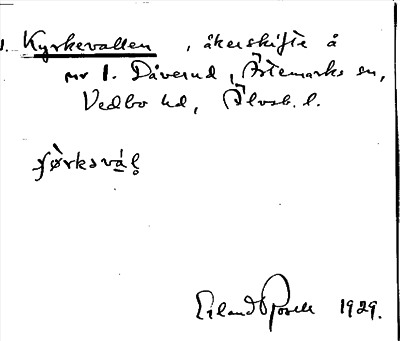 1. Kyrkevallen, åkerskifte å
nr 1. Dåverud, Ärtemarks sn,
Vedbo hd, Älvsb. l.
ʃørksvál̥
Erland Rosell 1929.